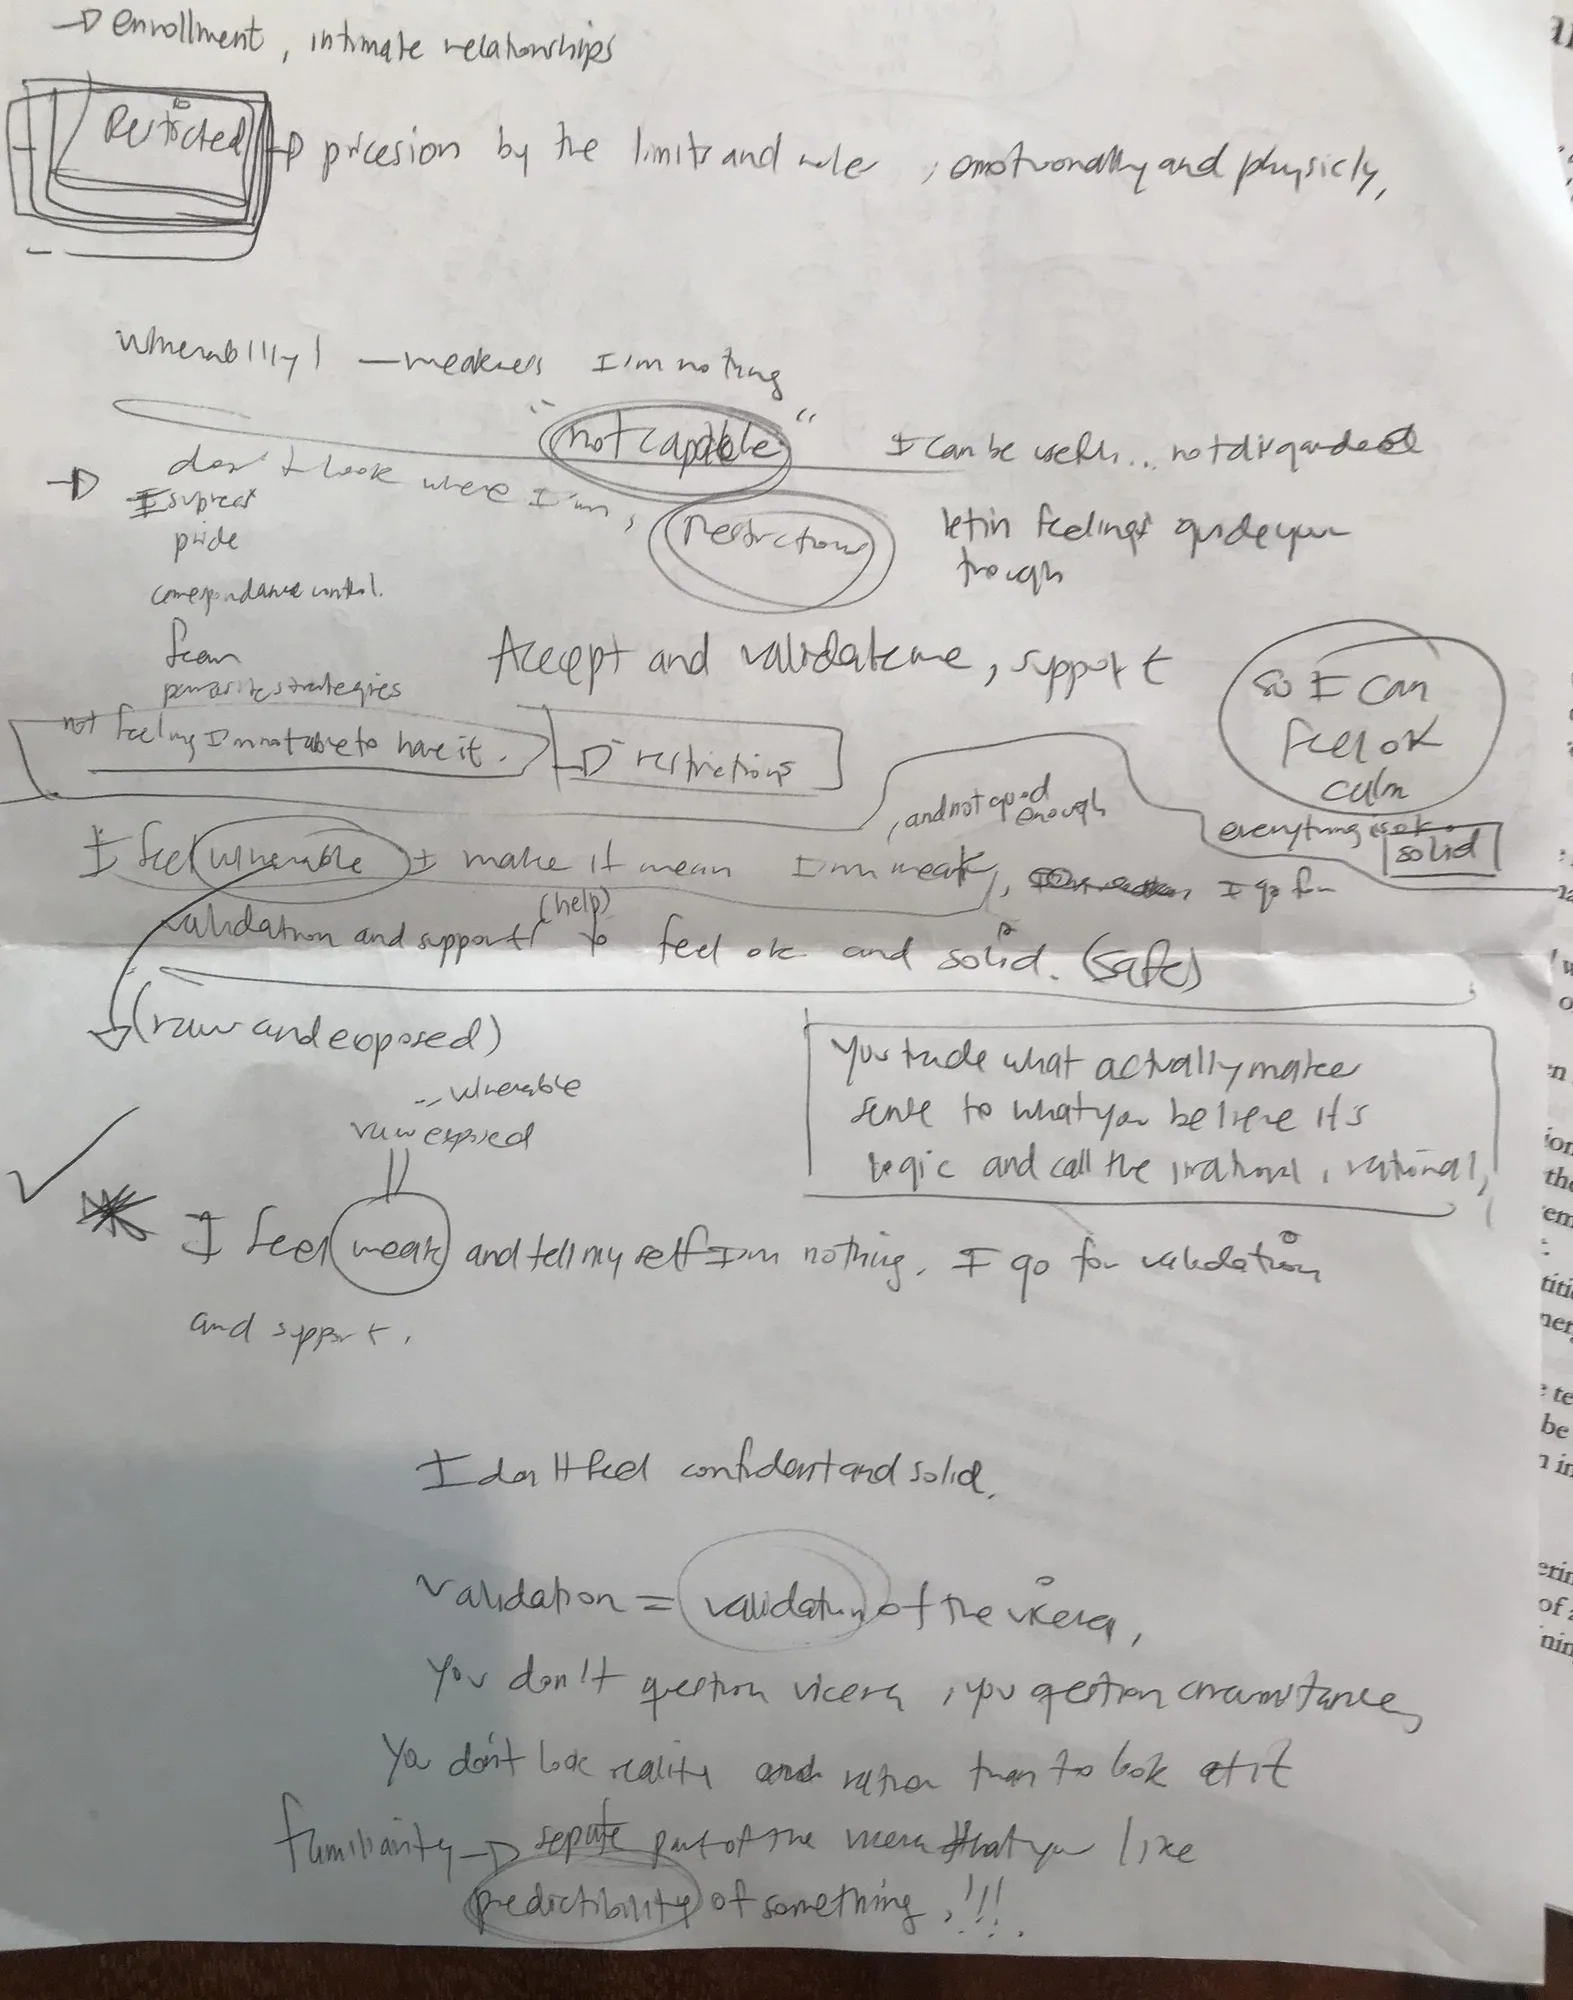 → enrollment, intimate relationships
Restricted → pricesion by the limits and rules, emotionally and physicly,
vulnerability! — weakness I'm nothing
"not capable" I can be useful... not disgarded
→ don't look where I'm, restrictions let in feelings guide you
trough
pride
correspondance control.
fear
parasite strategies
Accept and validate me, support
so I can
feel ok
calm
everything is ok.
solid
not feeling I'm not able to have it. → restrictions
, and not good
enough
I feel vulnerable I make it mean I'm weak, I go for
validation and support (help) to feel ok and solid. (safe)
(raw and exposed)
... vulnerable
raw exposed
You trade what actually make
sense to what you believe it's
logic and call the irational, rational,
I feel weak and tell my self I'm nothing. I go for validation
and support.
I don't feel confident and solid.
validation = validation of the vicera,
You don't question vicera, you question circumstances
You don't look reality and rather than to look at it
familiarity → sepate part of the vicera that you like
predictibility of something, !!!